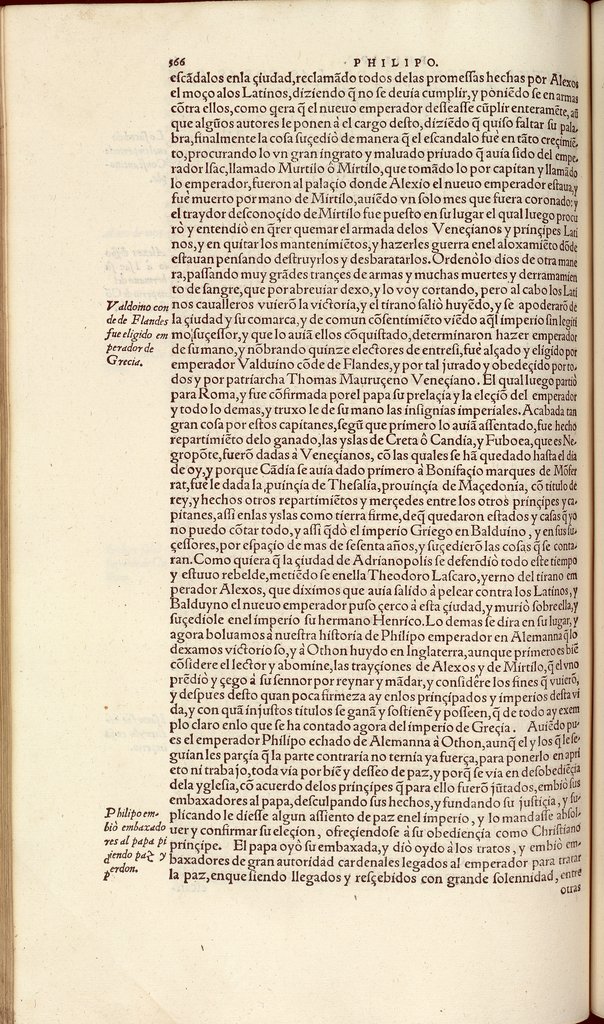 566
PHILIPO.
eſcãdalos enla çiudad, reclamãdo todos delas promeſſas hechas por Alexos
el moço alos Latinos, diziendo q̃ no se deuia cumplir, y poniẽdo se en armas
cõtra ellos, como q̃ra q̃ el nueuo emperador deſſeaſſe cũplir enteramẽte, aũ
que algũos autores le ponen à el cargo deſto, diziẽdo q̃ quiſo faltar su pala
bra, finalmente la coſa ſuçediò de manera q̃ el eſcandalo fuè en tãto creçimiẽ
to, procurando lo vn gran ingrato y maluado priuado q̃ auia ſido del empe
rador Iſac, llamado Murtilo ô Mirtilo, que tomãdo lo por capitan y llamãdo
lo emperador, fueron al palaçio donde Alexio el nueuo emperador eſtaua, y
fuè muerto por mano de Mirtilo, auiẽdo vn ſolo mes que fuera coronado: y
el traydor deſconoçido de Mirtilo fue pueſto en ſu lugar el qual luego procu
rò y entendiò en q̃rer quemar el armada delos Veneçianos y prinçipes Lati
nos, y en quitar los mantenimiẽtos, y hazerles guerra enel aloxamiẽto dõde
eſtauan penſando deſtruyrlos y desbaratarlos. Ordenòlo dios de otra mane
ra, paſſando muy grãdes trançes de armas y muchas muertes y derramamien
to de ſangre, que por abreuiar dexo, y lo voy cortando, pero al cabo los Lati
nos caualleros vuierõ la victoria, y el tirano ſaliò huyẽdo, y ſe apoderarõ de
la çiudad y ſu comarca, y de comun cõſentimiẽto viẽdo aq̃l imperio ſin legiti
mo ſuçeſſor, y que lo auiã ellos cõquiſtado, determinaron hazer emperador
de ſu mano, y nõbrando quinze electores de entreſi, fuè alçado y eligido por
emperador Valduino cõde de Flandes, y por tal jurado y obedeçido por to-
dos y por patriarcha Thomas Mauruçeno Veneçiano. El qual luego partiò
para Roma, y fue cõfirmada porel papa ſu prelaçia y la eleçiõ del emperador
y todo lo demas, y truxo le de ſu mano las inſignias imperiales. Acabada tan
gran coſa por eſtos capitanes, ſegũ que primero lo auiã aſſentado, fue hecho
repartimiẽto delo ganado, las yslas de Creta ô Candia, y Fuboea, que es Ne-
gropõte, fuerõ dadas à Veneçianos, cõ las quales ſe hã quedado haſta el dia
de oy, y porque Cãdia ſe auia dado primero à Bonifaçio marques de Mõfer
rat, fue le dada la ꝓuinçia de Theſalia, prouinçia de Maçedonia, cõ titulo de
rey, y hechos otros repartimiẽtos y merçedes entre los otros prinçipes y ca-
pitanes, aſſi enlas yslas como tierra firme, deq̃ quedaron eſtados y caſas q̃ yo
no puedo cõtar todo, y aſſi q̃dò el imperio Griego en Balduino, y en ſus ſu-
çeſſores, por eſpaçio de mas de ſeſenta años, y ſuçedierõ las coſas q̃ ſe conta-
ran. Como quiera q̃ la çiudad de Adrianopolis ſe defendiò todo eſte tiempo
y eſtuuo rebelde, metiẽdo ſe enella Theodoro Laſcaro, yerno del tirano em
perador Alexos, que diximos que auia ſalido à pelear contra los Latinos, y
Balduyno el nueuo emperador puſo çerco à eſta çiudad, y muriò ſobreella, y
ſuçediòle enel imperio ſu hermano Henrico. Lo demas ſe dira en ſu lugar, y
agora boluamos à nueſtra hiſtoria de Philipo emperador en Alemanna q̃ lo
dexamos victorioſo, y à Othon huydo en Inglaterra, aunque primero es biẽ
cõſidere el lector y abomine, las trayçiones de Alexos y de Mirtilo, q̃ el vno
prẽdiò y çegò à ſu ſennor por reynar y mãdar, y conſidére los fines q̃ vuierõ,
y deſpues deſto quan poca firmeza ay enlos prinçipados y imperios deſta vi
da, y con quã injuſtos titulos ſe ganã y ſoſtienẽ y poſſeen, q̃ de todo ay exem
plo claro enlo que ſe ha contado agora del imperio de Greçia. Auiẽdo pu-
es el emperador Philipo echado de Alemanna à Othon, aunq̃ el y los q̃ le ſe-
guian les parçia q̃ la parte contraria no ternia ya fuerça, para ponerlo en apri
eto ni trabajo, toda via por biẽ y deſſeo de paz, y porq̃ ſe via en deſobediẽçia
dela ygleſia, cõ acuerdo delos prinçipes q̃ para ello fuerõ jũtados, embiò ſus
embaxadores al papa, deſculpando ſus hechos, y fundando ſu juſtiçia, y ſu-
plicando le dieſſe algun aſſiento de paz enel imperio, y lo mandaſſe abſol-
uer y confirmar ſu eleçion, ofreçiendoſe à ſu obediençia como Chriſtiano
prinçipe. El papa oyò ſu embaxada, y diò oydo à los tratos, y embiò em-
baxadores de gran autoridad cardenales legados al emperador para tratar
la paz, enque ſiendo llegados y reſçebidos con grande ſolennidad, entre
otras
Valdoino con
de de Flandes
fue eligido em
perador de
Grecia.
Philipo em-
biò embaxado
res al papa pi
diendo paz y
perdon.